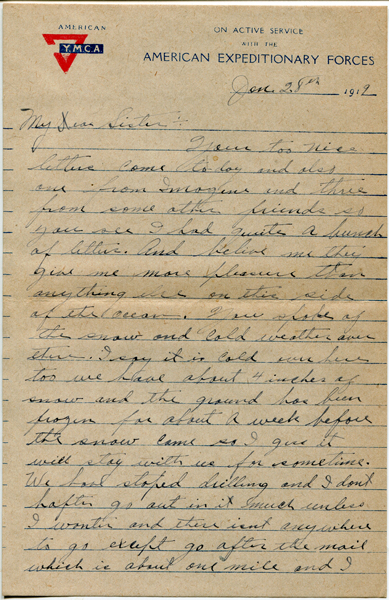 AMERICAN
Y.M.C.A.
ON ACTIVE SERVICE
WITH THE
AMERICAN EXPEDITIONARY FORCES
Jan. 28th 1919
My Dear Sister:
Your too nice
letters come to day and also
one from Imogine and three
from some other friends so
you see I had quite a bunch
of letters. And belive me they
give me more pleasure than
anything else on this side
of the ocean. You spoke of
the snow and cold weather over
there. I say it is cold over here
too we have about 4 inches of
snow and the ground has been
frozen for about a week before
the snow came so I gess it
will stay with us for sometime.
We have stoped drilling and I dont
hafter go out in it much unless
I wonter and there isnt anywhere
to go except go after the mail
which is about one mile and I